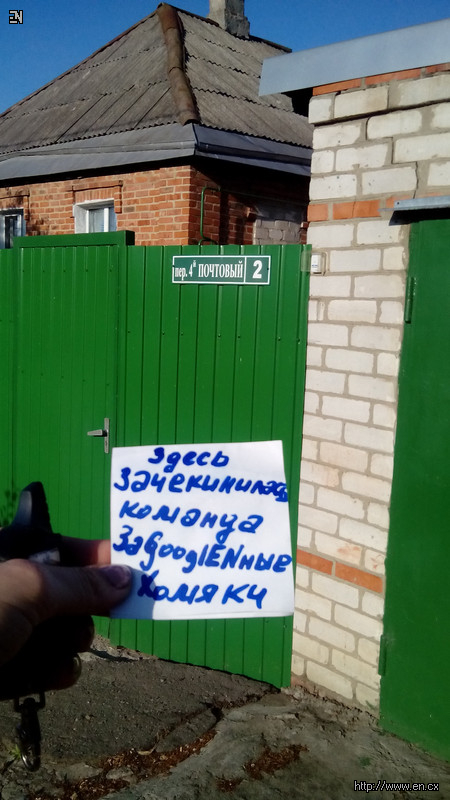 EN
пер. 4й ПОЧТОВЫЙ 2
Здесь
Зачекинилась
команда
ЗаgooglENные
Хомяки
http://www.en.cx